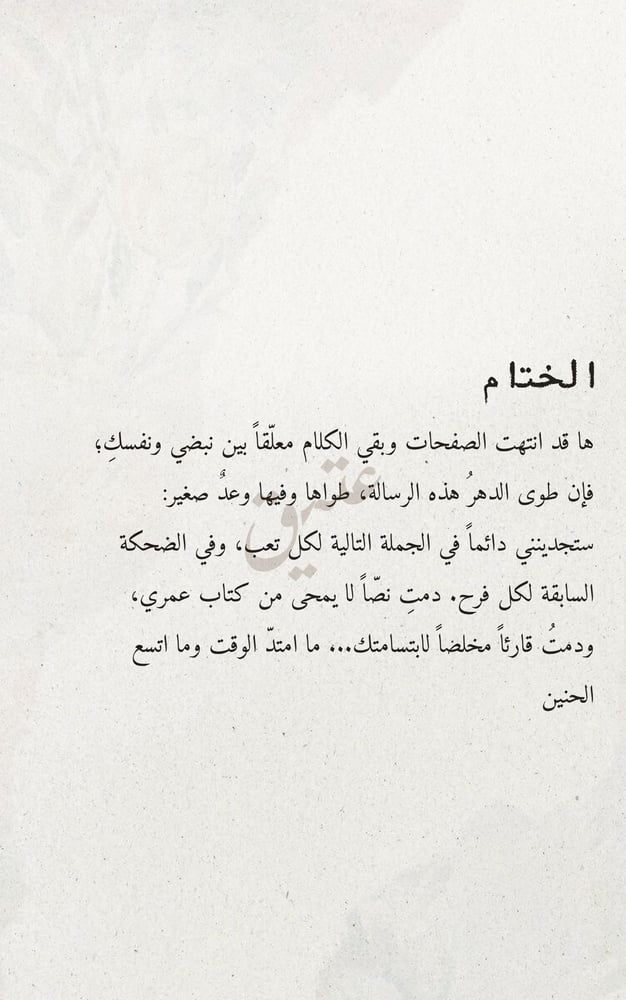 الختام
ها قد انتهت الصفحات وبقي الكلام معلّقاً بين نبضي ونفسكِ؛
فإن طوى الدهرُ هذه الرسالة، طواها وفيها وعدٌ صغير:
ستجدينني دائماً في الجملة التالية لكل تعب، وفي الضحكة
السابقة لكل فرح. دمتِ نصّاً لا يمحى من كتاب عمري،
ودمتُ قارئاً مخلضاً لابتسامتك... ما امتدّ الوقت وما اتسع
الحنين
عتيق